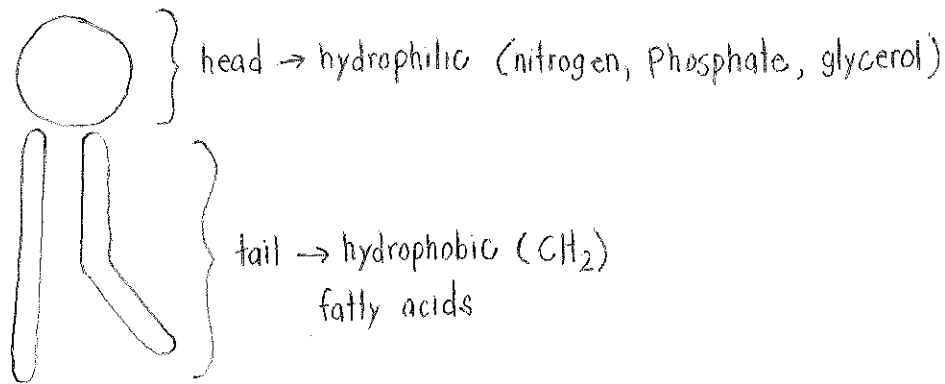 head → hydrophilic (nitrogen, Phosphate, glycerol)
tail → hydrophobic (CH₂)
fatty acids